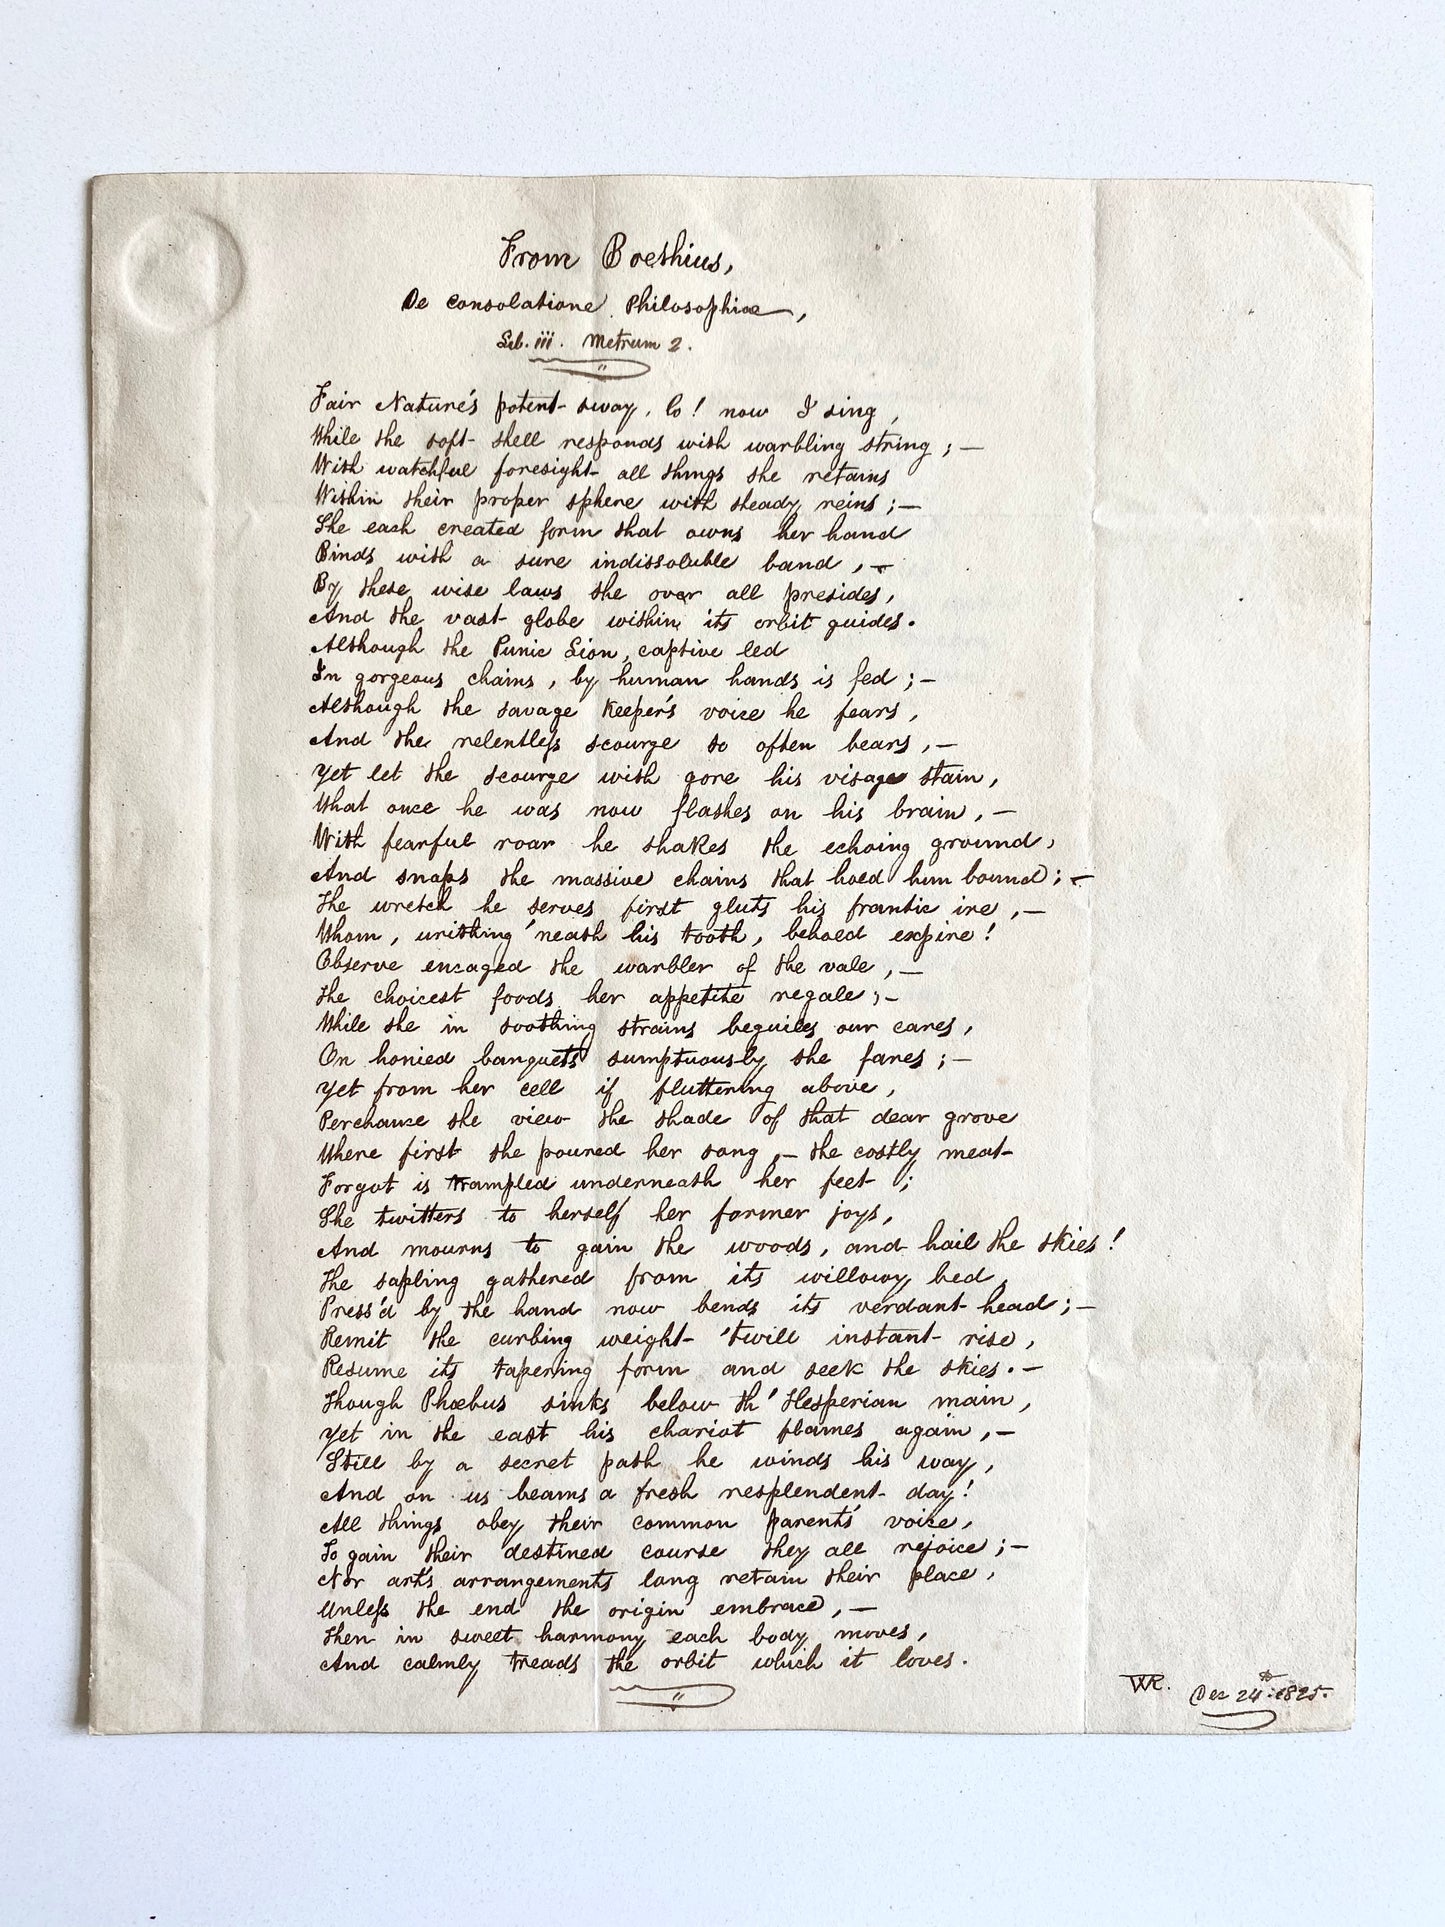 From Boethius,
De Consolatione Philosophiæ,
Lib. iii. Metrum 2.
Fair Nature's potent sway, lo! now I sing,
While the soft shell responds with warbling string;—
With watchful foresight all things she retains
Within their proper sphere with steady reins;—
She each created form that owns her hand
Binds with a sure indissoluble band,—
By these wise laws she over all presides,
And the vast globe within its orbit guides.
Although the Punic Lion, captive led
In gorgeous chains, by human hands is fed;—
Although the savage keeper's voice he fears,
And the relentless scourge so often bears,—
Yet let the scourge with gore his visage stain,
What once he was now flashes on his brain,—
With fearful roar he shakes the echoing ground,
And snaps the massive chains that hold him bound;—
The wretch he serves first gluts his frantic ire,—
Whom, writhing 'neath his tooth, behold expire!
Observe encaged the warbler of the vale,—
The choicest foods her appetite regale;—
While she in soothing strains beguiles our cares,
On honied banquets sumptuously she fares;—
Yet from her cell if fluttering above,
Perchance she view the shade of that dear grove
Where first she poured her song,— the costly meat
Forgot is trampled underneath her feet;
She twitters to herself her former joys,
And mourns to gain the woods, and hail the skies!
The sapling gathered from its willowy bed,
Press'd by the hand now bends its verdant head;—
Remit the curbing weight 'twill instant rise,
Resume its tapering form and seek the skies.—
Though Phœbus sinks below th' Hesperian main,
Yet in the east his chariot flames again,—
Still by a secret path he winds his way,
And on us beams a fresh resplendent day!
All things obey their common parent's voice,
To gain their destined course they all rejoice;—
Nor art's arrangements long retain their place,
Unless the end the origin embrace,—
Then in sweet harmony each body moves,
And calmly treads the orbit which it loves.
WR. Dec 24th. 1825.